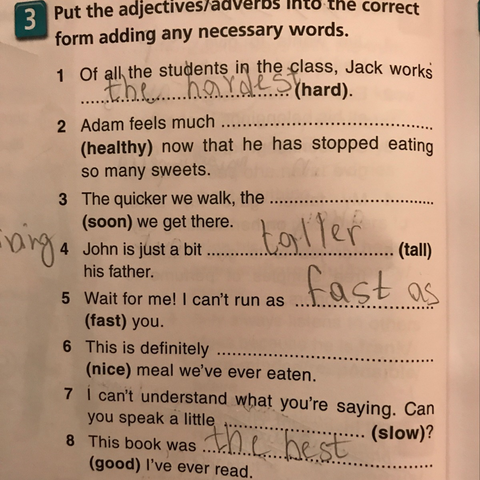 3 Put the adjectives/adverbs into the correct
form adding any necessary words.
1 Of all the students in the class, Jack works
the hardest (hard).
2 Adam feels much ........................................
(healthy) now that he has stopped eating
so many sweets.
3 The quicker we walk, the ..............................
(soon) we get there.
4 John is just a bit taller (tall)
his father.
5 Wait for me! I can't run as fast as
(fast) you.
6 This is definitely ........................................
(nice) meal we've ever eaten.
7 I can't understand what you're saying. Can
you speak a little .............................. (slow)?
8 This book was the best
(good) I've ever read.